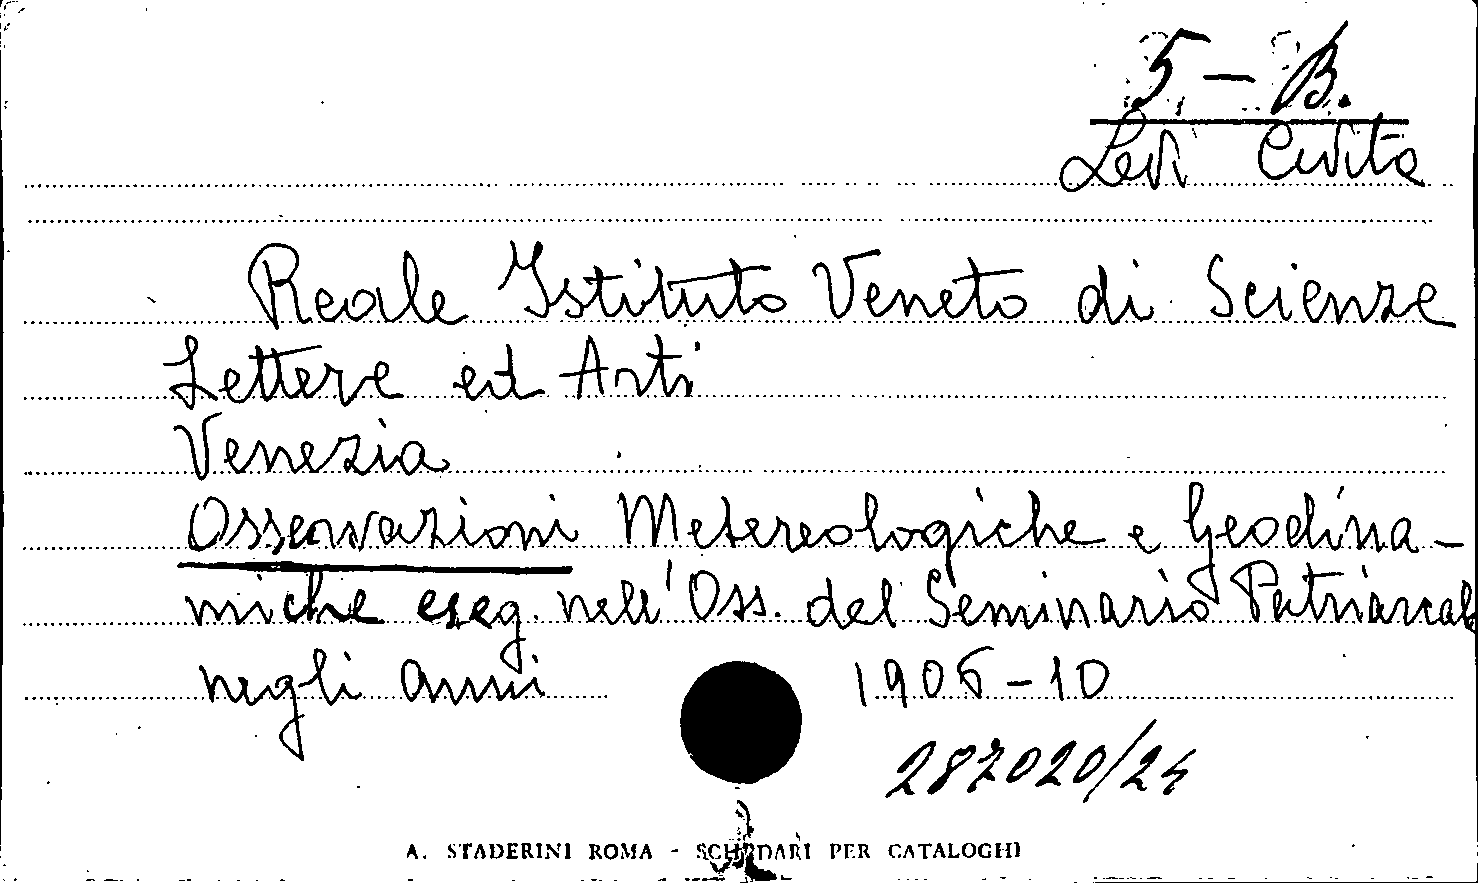 5 - B.
Levi Civita
Reale Istituto Veneto di Scienze
Lettere ed Arti
Venezia
Osservazioni Metereologiche e Geodina-
miche eseg. nell'Oss. del Seminario Patriarcale
negli anni 1906-10
287020/24
A. STADERINI ROMA - SCHEDARI PER CATALOGHI